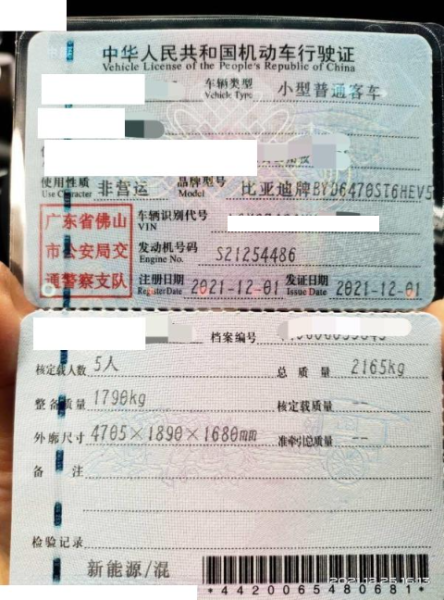 中华人民共和国机动车行驶证
Vehicle License of the People's Republic of China
车辆类型 小型普通客车
Vehicle Type
使用性质 非营运 品牌型号 比亚迪牌BYD6470ST6HEV5
Use Character Model
广东省佛山
市公安局交
通警察支队
车辆识别代号
VIN
发动机号码 S21254486
Engine No.
注册日期 2021-12-01 发证日期 2021-12-01
Register Date Issue Date
档案编号
核定载人数 5人 总质量 2165kg
整备质量 1790kg 核定载质量
外廓尺寸 4705×1890×1680mm 准牵引总质量 --
备注
检验记录
新能源/混
*4420065480681*
2021.12.25 16:13